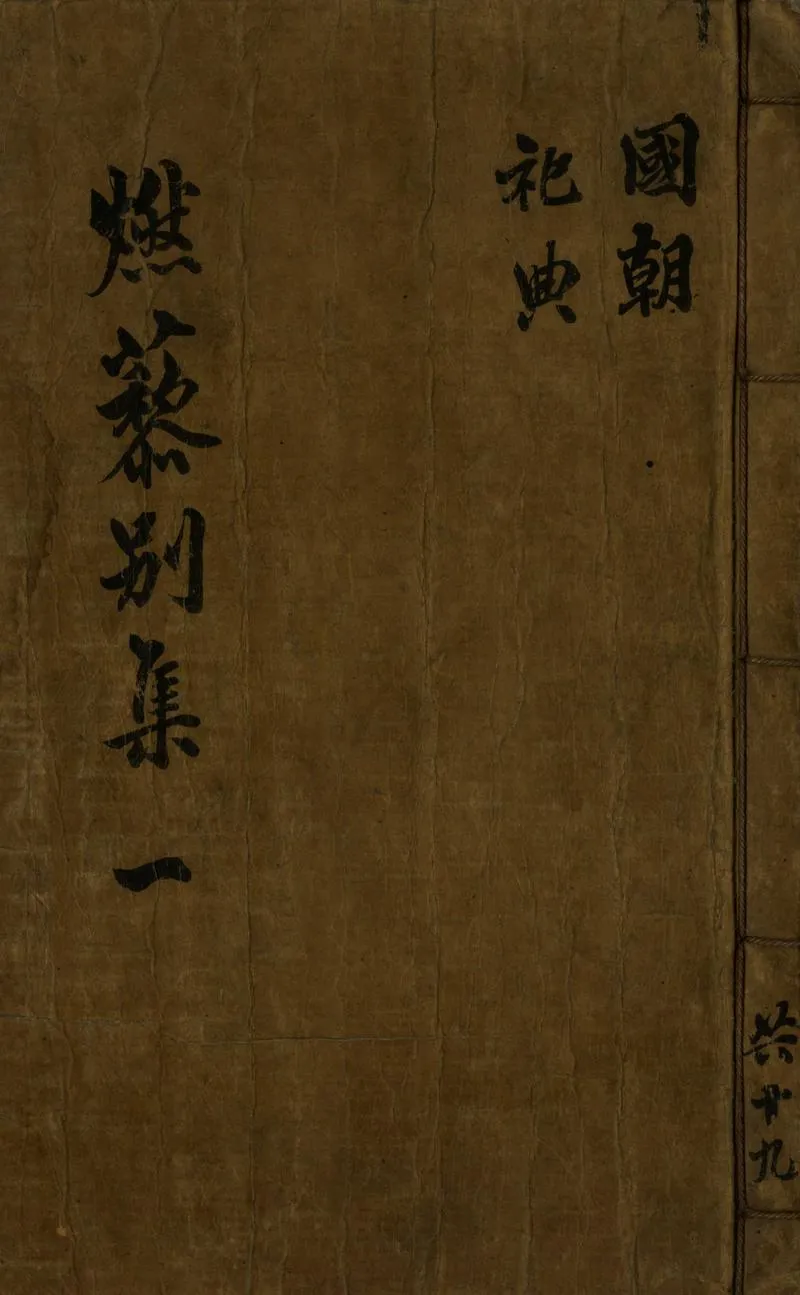 國朝
祀典
燃藜別集 一
共十九